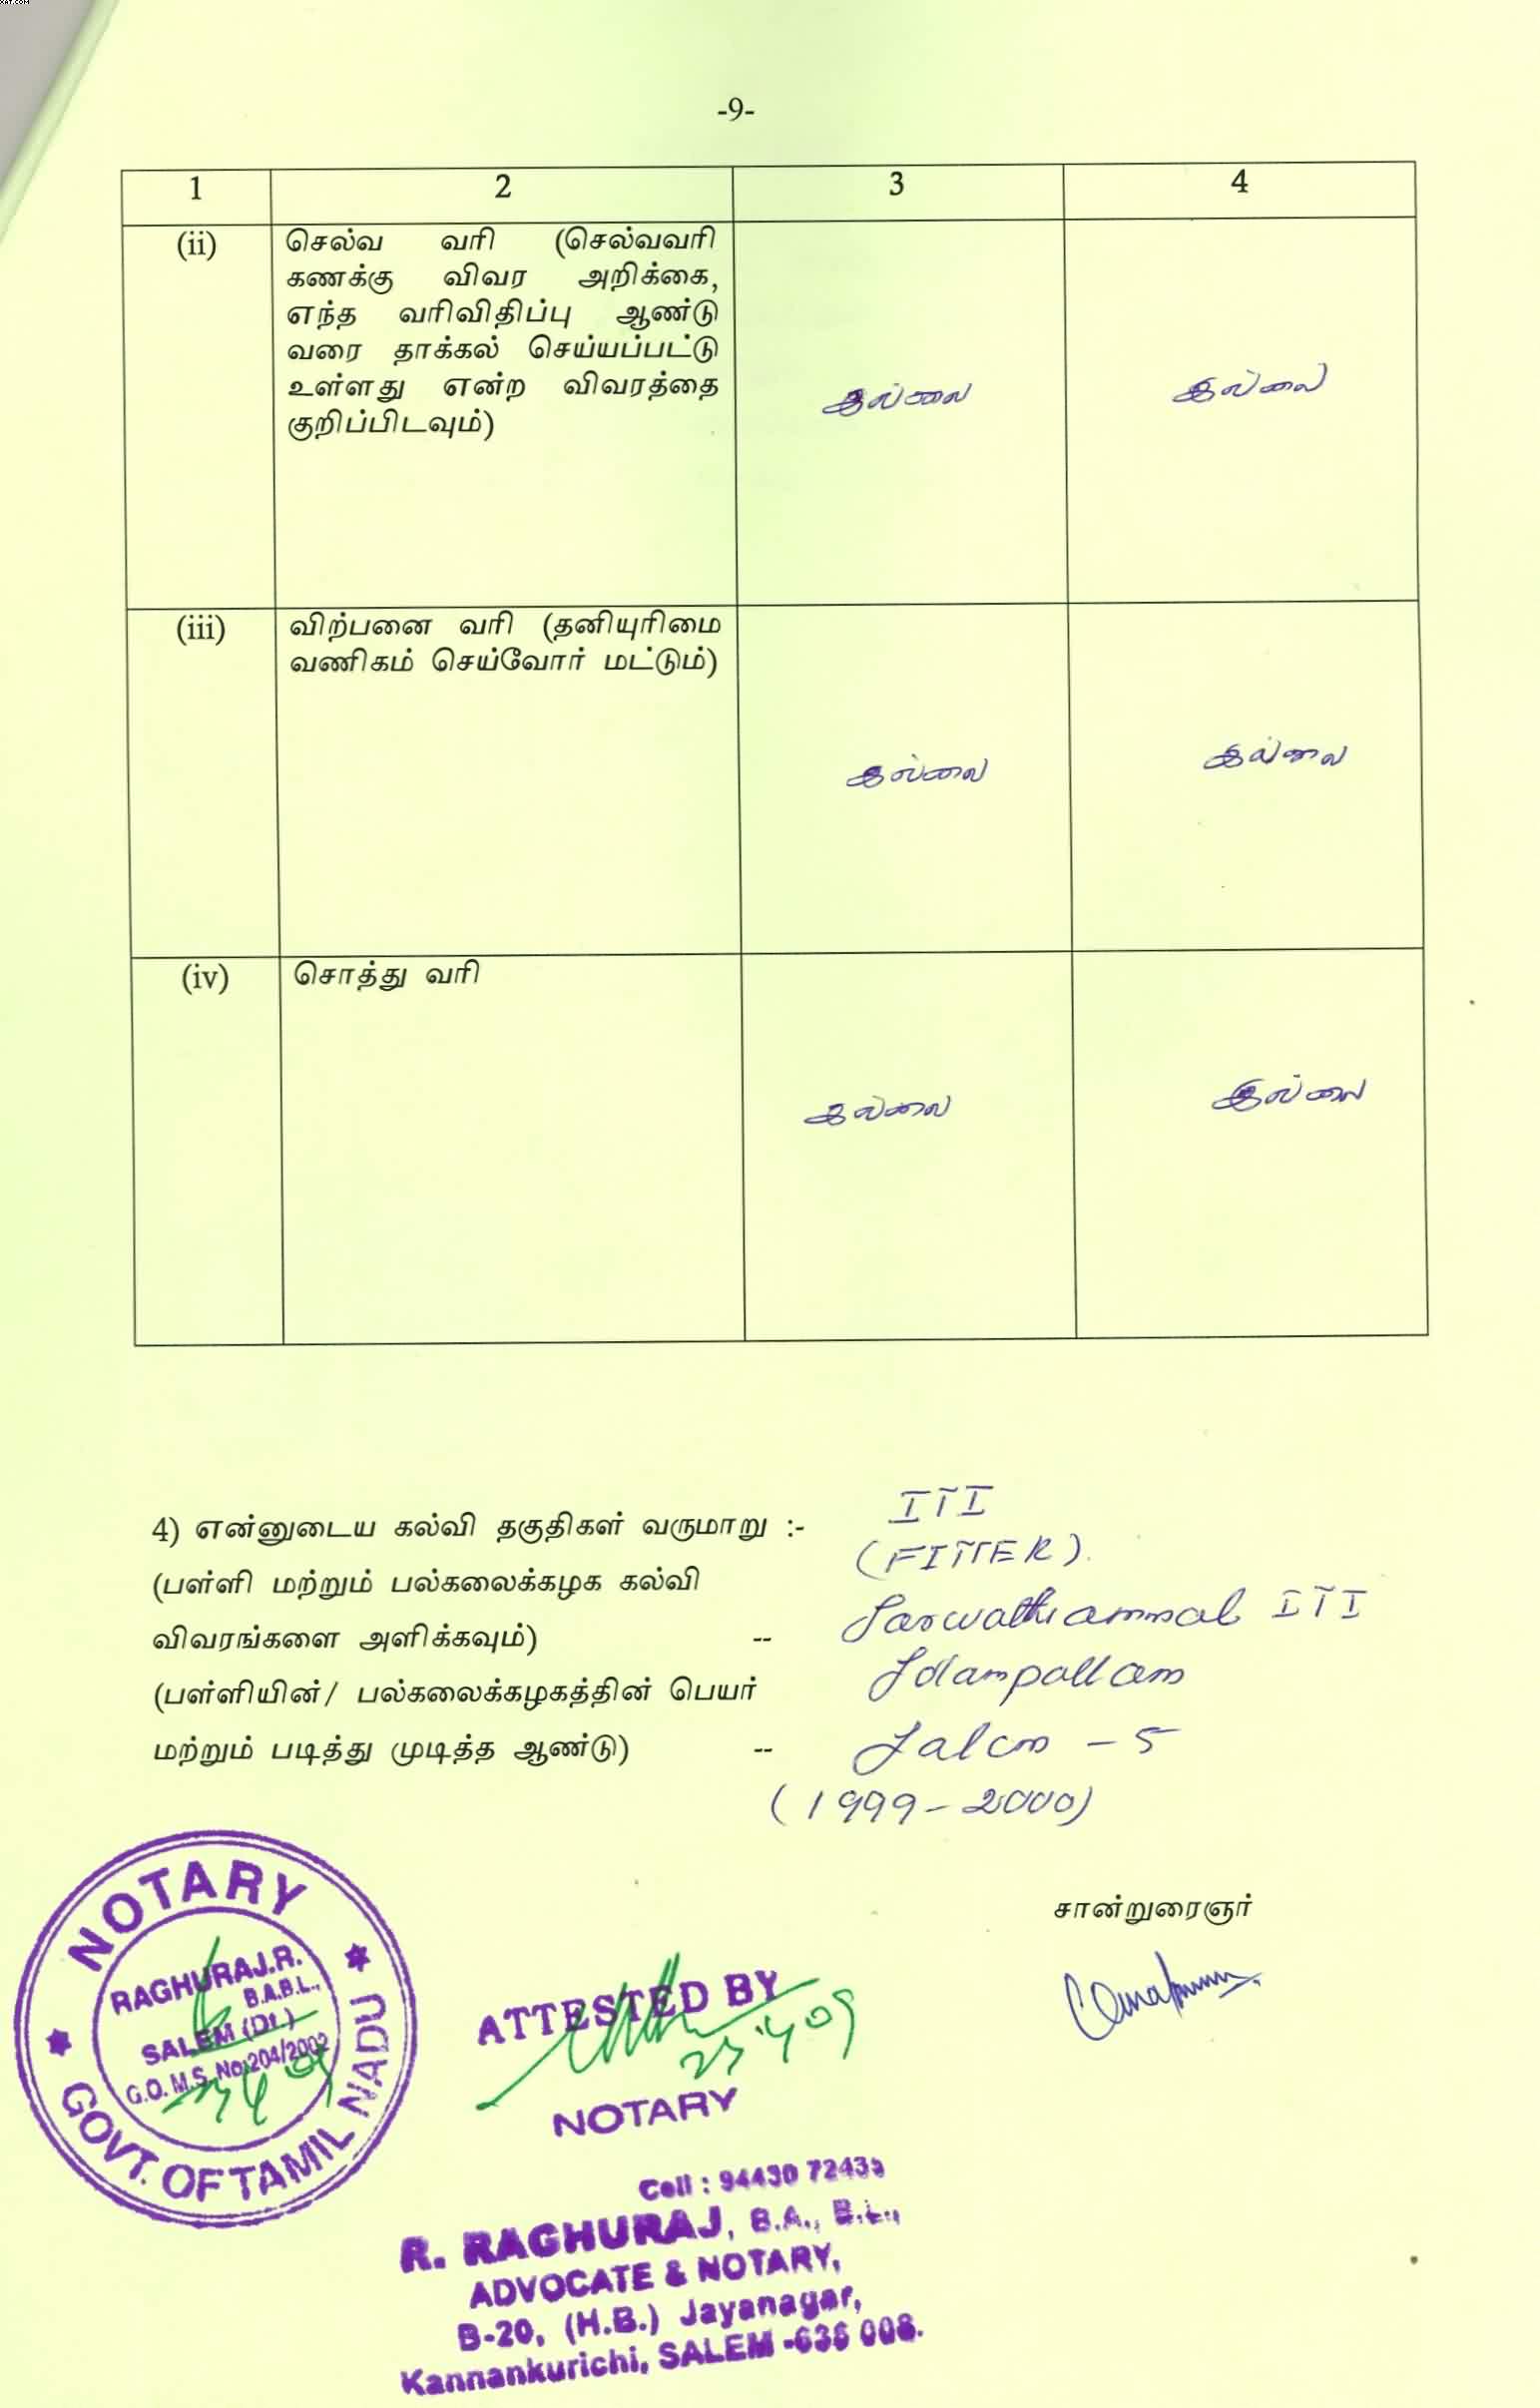 XAT.COM
-9-
1 2 3 4
(ii) செல்வ வரி (செல்வவரி
கணக்கு விவர அறிக்கை,
எந்த வரிவிதிப்பு ஆண்டு
வரை தாக்கல் செய்யப்பட்டு
உள்ளது என்ற விவரத்தை
குறிப்பிடவும்)
இல்லை இல்லை
(iii) விற்பனை வரி (தனியுரிமை
வணிகம் செய்வோர் மட்டும்)
இல்லை இல்லை
(iv) சொத்து வரி
இல்லை இல்லை
4) என்னுடைய கல்வி தகுதிகள் வருமாறு :- ITI
(FITTER).
(பள்ளி மற்றும் பல்கலைக்கழக கல்வி
விவரங்களை அளிக்கவும்) -- Sarwathiammal ITI
(பள்ளியின்/ பல்கலைக்கழகத்தின் பெயர்
மற்றும் படித்து முடித்த ஆண்டு) -- Salem - 5
(1999-2000)
சான்றுரைஞர்
NOTARY
RAGHURAJ.R.
B.A.B.L.,
SALEM (Dt.)
G.O.M.S. No.204/2002
GOVT. OF TAMIL NADU
ATTESTED BY
27.4.09
NOTARY
Cell : 94430 72435
R. RAGHURAJ, B.A., B.L.,
ADVOCATE & NOTARY,
B-20, (H.B.) Jayanagar,
Kannankurichi, SALEM -636 008.